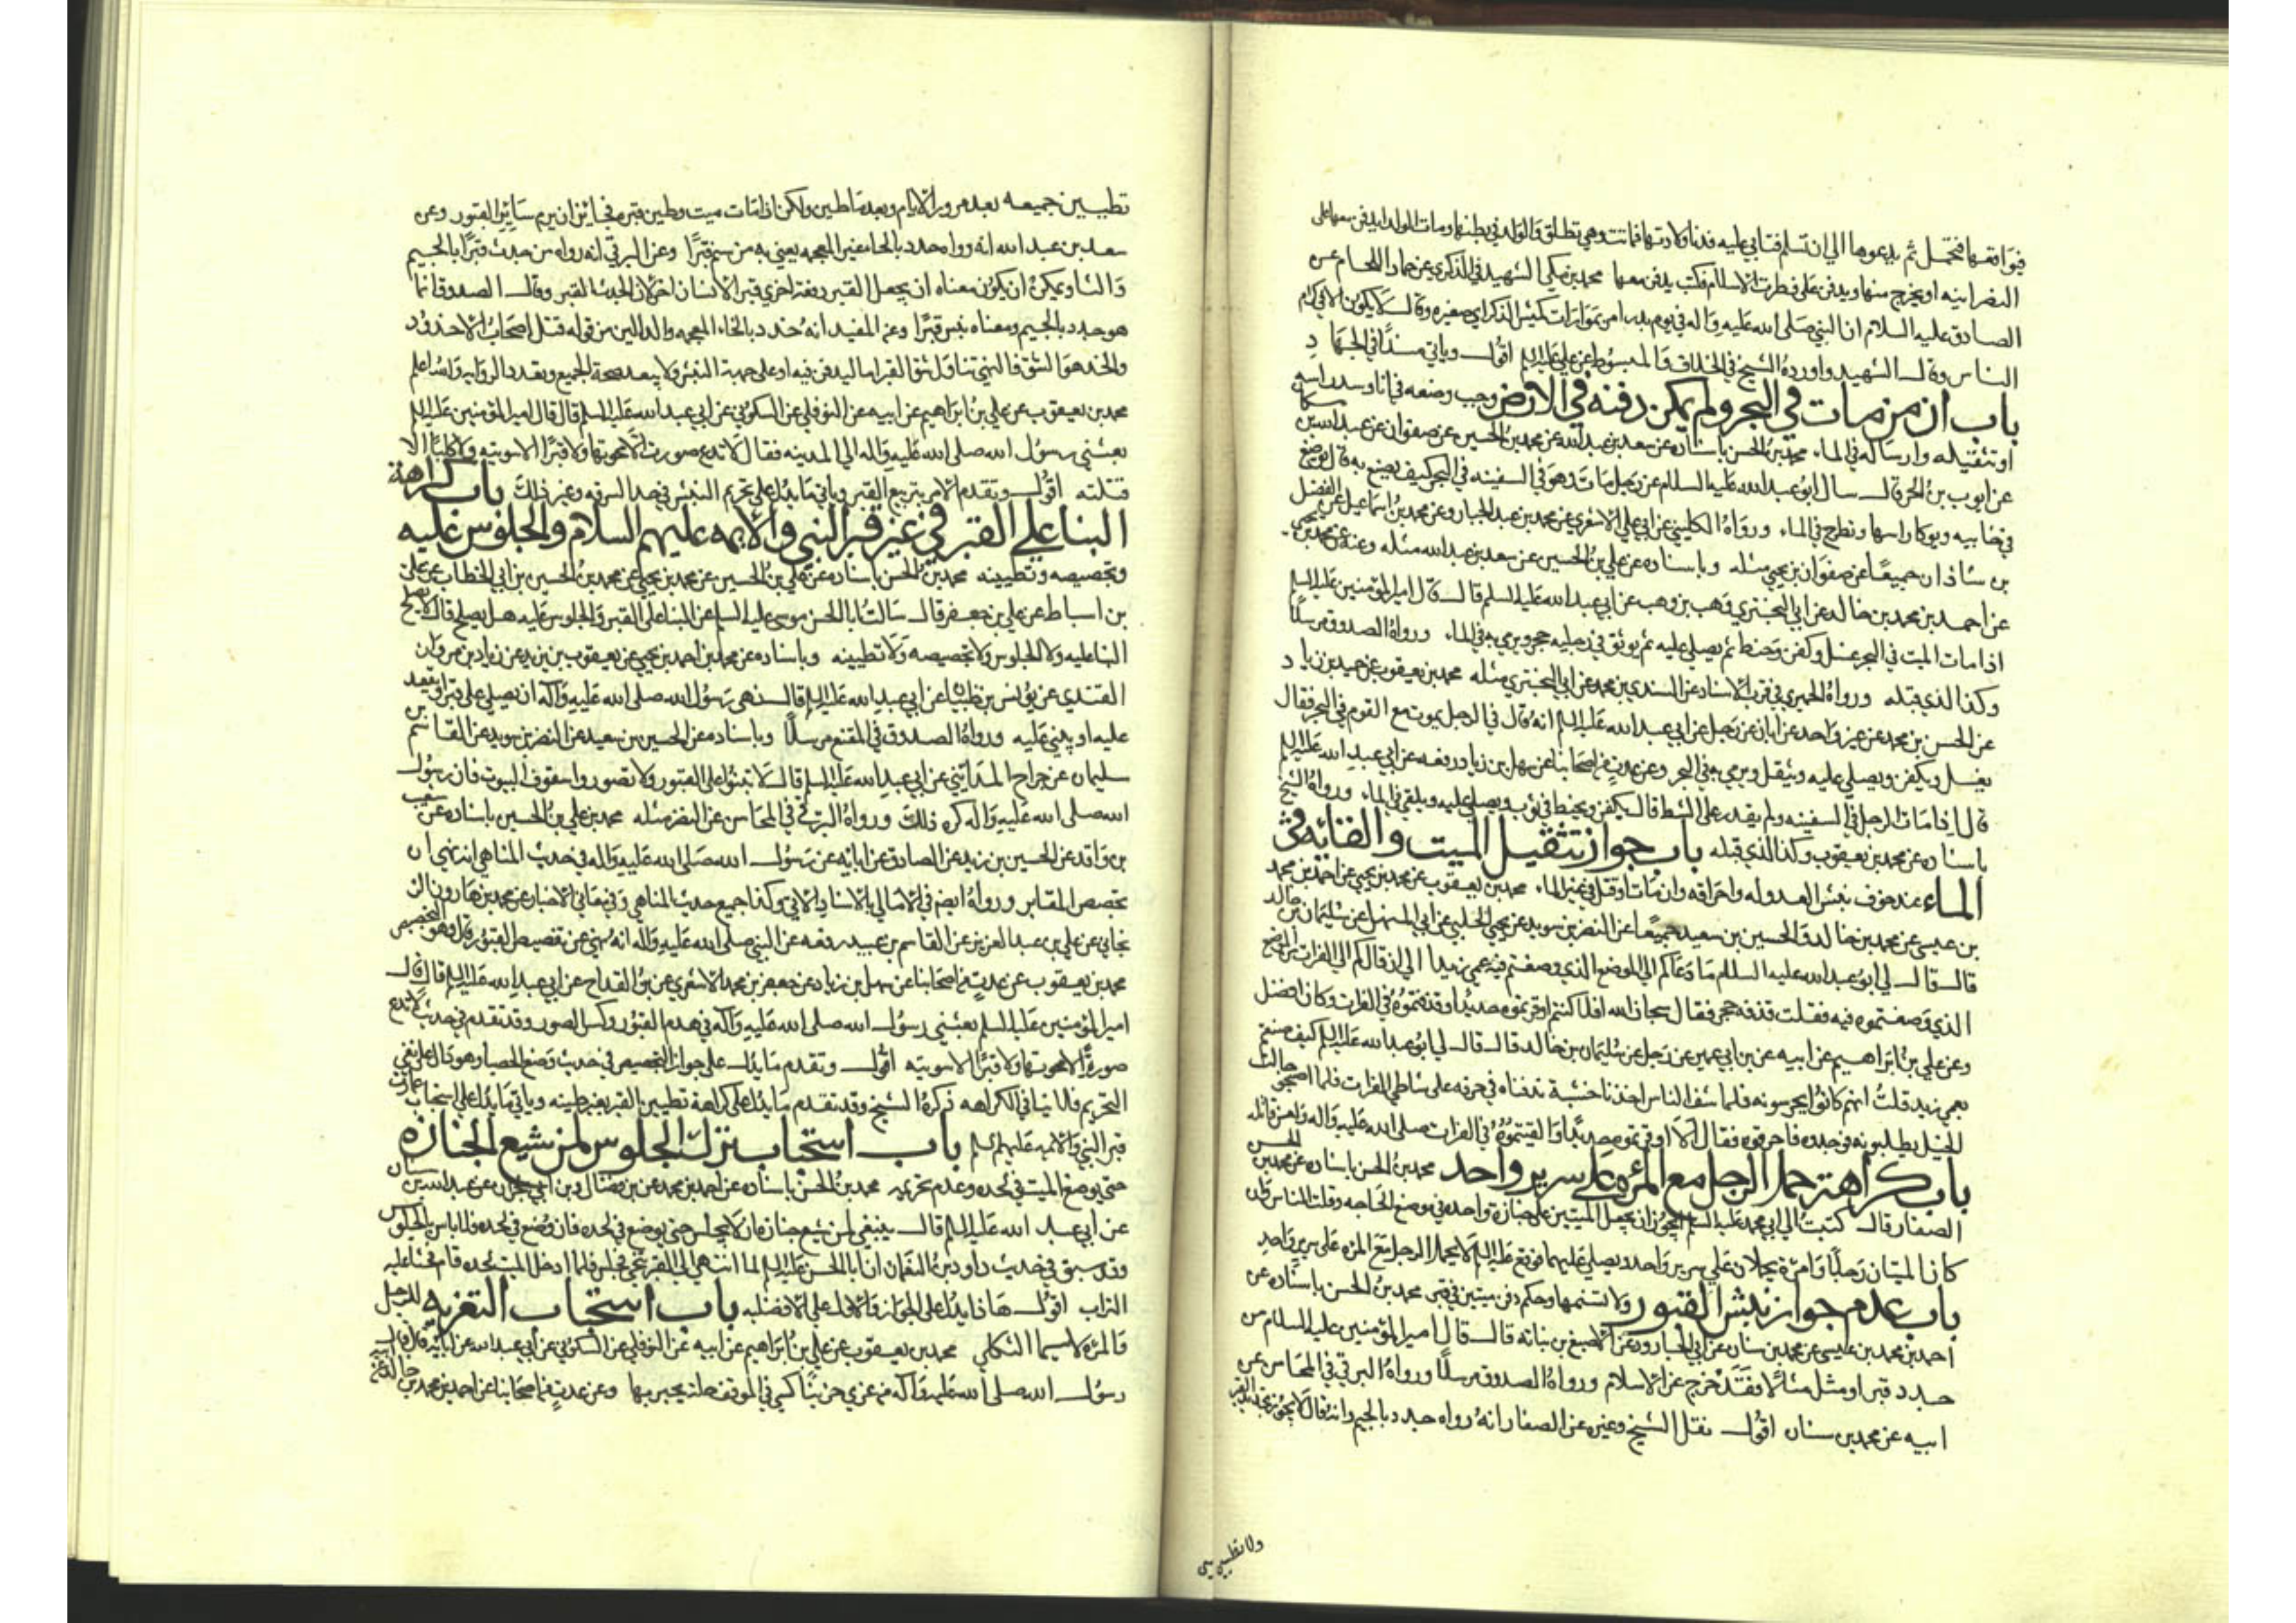 فيواقعها فتحمل ثم يدعوها الي ان تسلم فتابي عليه فدنا ولادتها فماتت وهي تطلق والولد في بطنها ومات الولد ايدفن معها على
النصرانيه او يخرج منها ويدفن على فطرت الاسلام فكتب يدفن معها محمد بن مكي الشهيد في الذكري عن حماد اللحام عن
الصادق عليه السلام ان النبي صلى الله عليه واله في يوم بدر امر بموارات كميش الذكر اي صغيره وقال لا يكون الا في كرام
الناس وقال الشهيد واورده الشيخ في الخلاف والمبسوط عن علي عليه السلم اقول وياتي مسندا في الجهاد
باب ان من مات في البحر ولم يمكن دفنه في الارض وجب وضعه في انا وسد راسه
او تثقيله وارساله في الماء محمد بن الحسن باسناده عن سعد بن عبد الله عن محمد بن الحسين عن صفوان عن عبد الله بن مسكان
عن ايوب بن الحر قال سال ابو عبد الله عليه السلام عن رجل مات وهو في السفينه في البحر كيف يصنع به قال يوضع
في خابيه ويوكا راسها وتطرح في الماء ورواه الكليني عن ابي علي الاشعري عن محمد بن عبد الجبار وعن محمد بن اسماعيل عن الفضل
بن شاذان جميعا عن صفوان بن يحيي مثله وباسناده عن علي بن الحسين عن سعد بن عبد الله مثله وعنه عن محمد بن يحيي
عن احمد بن محمد بن خالد عن ابي البختري وهب بن وهب عن ابي عبد الله عليه السلم قال قال امير المؤمنين عليه السلم
اذا مات الميت في البحر غسل وكفن وحنط ثم يصلى عليه ثم يوثق في رجليه حجر ويرمي به في الماء ورواه الصدوق مرسلا
وكذا الذي قبله ورواه الحميري في قرب الاسناد عن السندي بن محمد عن ابي البختري مثله محمد بن يعقوب عن حميد بن زياد
عن الحسن بن محمد عن غير واحد عن ابان عن رجل عن ابي عبد الله عليه السلم انه قال في الرجل يموت مع القوم في البحر فقال
يغسل ويكفن ويصلي عليه ويثقل ويرمي به في البحر وعن عدة من اصحابنا عن سهل بن زياد رفعه عن ابي عبد الله عليه السلم
قال اذا مات الرجل في السفينه ولم يقدر على الشط قال يكفن ويحنط في ثوب ويصلي عليه ويلقي في الماء ورواه الشيخ
باسناده عن محمد بن يعقوب وكذا الذي قبله باب جواز تثقيل الميت والقائه في
الماء عند خوف نبش العدو له واحراقه وان مات او قتل في غير الماء محمد بن يعقوب عن محمد بن يحيي عن احمد بن محمد
بن عيسى عن محمد بن خالد والحسين بن سعيد جميعا عن النضر بن سويد عن يحيي الحلبي عن ابي المستهل عن سليمان بن خالد
قال قال لي ابو عبد الله عليه السلام ما دعاكم الي الموضع الذي وضعتم فيه عمي زيدا الي ان قال كم الي الفرات من الموضع
الذي وضعتموه فيه فقلت قذفه حجر فقال سبحان الله افلا كنتم اوقرتموه حديدا وقذفتموه في الفرات وكان افضل
وعن علي بن ابراهيم عن ابيه عن بن ابي عمير عن رجل عن سليمان بن خالد قال قال لي ابو عبد الله عليه السلم كيف صنعتم
بعمي زيد قلت انهم كانوا يحرسونه فلما شف الناس اخذنا خشبته فدفناه في جرف على شاطي الفرات فلما اصبحوا جالت
الخيل يطلبونه فوجدوه فاحرقوه فقال الا اوقرتموه حديدا والقيتموه في الفرات صلى الله عليه واله ولعن قاتله
باب كراهة حمل الرجل مع المرءه على سرير واحد محمد بن الحسن باسناده عن محمد بن الحسن
الصفار قال كتبت الي ابي محمد عليه السلم ايجوز ان يجعل الميتين على جنازة واحده في موضع الحاجه وقلت الناس وان
كان الميتان رجلا وامرءة يحملان علي سرير واحد ويصلي عليهما فوقع عليه السلم لا يحمل الرجل مع المرءه على سرير واحد
باب عدم جواز نبش القبور ولا تسنمها وحكم دفن ميتين في قبر محمد بن الحسن باسناده عن
احمد بن محمد بن عيسى عن محمد بن سنان عن ابي الجارود عن الاصبغ بن نباته قال قال امير المؤمنين عليه السلام من
حدد قبرا او مثل مثالا فقد خرج عن الاسلام ورواه الصدوق مرسلا ورواه البرقي في المحاسن عن
ابيه عن محمد بن سنان اقول نقل الشيخ وغيره عن الصفار انه رواه جدد بالجيم وانه قال لا يجوز تجديد القبر
ولا تطيين
تطيين جميعه بعد مرور الايام وبعد ما طين ولكن اذا مات ميت وطين قبره فجائز ان يرم سائر القبور وعن
سعد بن عبد الله انه رواه حدد بالحاء غير المعجمه يعني به من سنم قبرا وعن البرقي انه رواه من جدث قبرا بالجيم
والثاء ويمكن ان يكون معناه ان يجعل القبر دفعة اخري قبر الانسان اخر لان الجدث القبر وقال الصدوق انما
هو جدد بالجيم ومعناه نبش قبرا وعن المفيد انه خدد بالخاء المعجمه والدالين من قوله قتل اصحاب الاخدود
والخد هو الشق فالنهي تناول شق القبر اما ليدفن فيه او على جهة النبش ولا يبعد صحة الجميع وتعدد الروايه والله اعلم
محمد بن يعقوب عن علي بن ابراهيم عن ابيه عن النوفلي عن السكوني عن ابي عبد الله عليه السلم قال قال امير المؤمنين عليه السلم
بعثني رسول الله صلى الله عليه واله الي المدينه فقال لا تدع صورة الا محوتها ولا قبرا الا سويته ولا كلبا الا
قتلته اقول وتقدم الامر بتربيع القبر وياتي ما يدل على تحريم النبش في حد السرقه وغير ذلك باب كراهة
البنا علي القبر في غير قبر النبي والائمه عليهم السلام والجلوس عليه
وتجصيصه وتطيينه محمد بن الحسن باسناده عن علي بن الحسين عن محمد بن يحيي عن محمد بن الحسين بن ابي الخطاب عن علي
بن اسباط عن علي بن جعفر قال سالت ابا الحسن موسى عليه السلم عن البنا على القبر والجلوس عليه هل يصلح قال لا يصلح
البنا عليه ولا الجلوس ولا تجصيصه ولا تطيينه وباسناده عن محمد بن احمد بن يحيي عن يعقوب بن يزيد عن زياد بن مروان
القندي عن يونس بن ظبيان عن ابي عبد الله عليه السلم قال نهى رسول الله صلى الله عليه واله ان يصلي على قبر او يقعد
عليه او يبني عليه ورواه الصدوق في المقنع مرسلا وباسناده عن الحسين بن سعيد عن النضر بن سويد عن القاسم بن
سليمان عن جراح المدايني عن ابي عبد الله عليه السلم قال لا تبنوا على القبور ولا تصوروا سقوف البيوت فان رسول
الله صلى الله عليه واله كره ذلك ورواه البرقي في المحاسن عن النضر مثله محمد بن علي بن الحسين باسناده عن شعيب
بن واقد عن الحسين بن زيد عن الصادق عن ابائه عن رسول الله صلى الله عليه واله في حديث المناهي انه نهي ان
تجصص المقابر ورواه ايضا في الامالي بالاسناد الاتي وكذا جميع حديث المناهي وفي معاني الاخبار عن محمد بن هارون الز
نجاني عن علي بن عبد العزيز عن القاسم بن عبيد رفعه عن النبي صلى الله عليه واله انه نهي عن تقصيص القبور قال وهو التجصيص
محمد بن يعقوب عن عدة من اصحابنا عن سهل بن زياد عن جعفر بن محمد الاشعري عن بن القداح عن ابي عبد الله عليه السلم قال قال
امير المؤمنين عليه السلم بعثني رسول الله صلى الله عليه واله في هدم القبور وكسر الصور وقد تقدم في حديث لا تدع
صورة الا محوتها ولا قبرا الا سويته اقول وتقدم ما يدل على جواز التجصيص في حديث وضع الحصا وهو دال على نفي
التحريم فلا ينافي الكراهه ذكره الشيخ وقد تقدم ما يدل على كراهة تطيين القبر بغير طينه وياتي ما يدل على استحباب عمارة
قبر النبي والائمه عليهم السلم باب استحباب ترك الجلوس لمن شيع الجنازه
حتى يوضع الميت في لحده وعدم تحريمه محمد بن الحسن باسناده عن احمد بن محمد عن بن فضال وبن ابي نجران عن عبد الله بن سنان
عن ابي عبد الله عليه السلم قال ينبغي لمن شيع جنازه ان لا يجلس حتى يوضع في لحده فان وضع في لحده فلا باس بالجلوس
وقد سبق في حديث داود بن النعمان ان ابا الحسن عليه السلم لما انتهى الي القبر تنحى فجلس فلما ادخل الميت لحده قام فحثا عليه
التراب اقول هذا يدل على الجواز والاول على الافضليه باب استحباب التعزيه للرجل
والمرءه لاسيما الثكلي محمد بن يعقوب عن علي بن ابراهيم عن ابيه عن النوفلي عن السكوني عن ابي عبد الله عن ابائه قال قال
رسول الله صلى الله عليه واله من عزي حزينا كسي في الموقف حلة يحبر بها وعن عدة من اصحابنا عن احمد بن محمد بن خالد عن